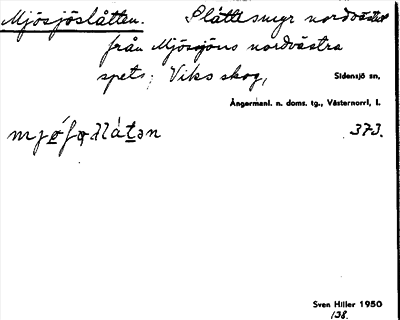 Mjösjöslåtten. Slåttesmyr nordväster
från Mjösjöns nordvästra
spets; Viks skog,
Sidensjö sn,
Ångermanl. n. doms. tg., Västernorrl. l.
373.
Sven Hiller 1950
138.